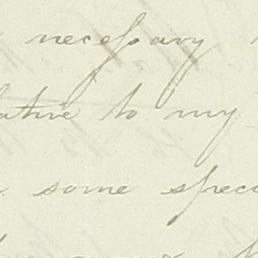 necessary
lative to my
some spec